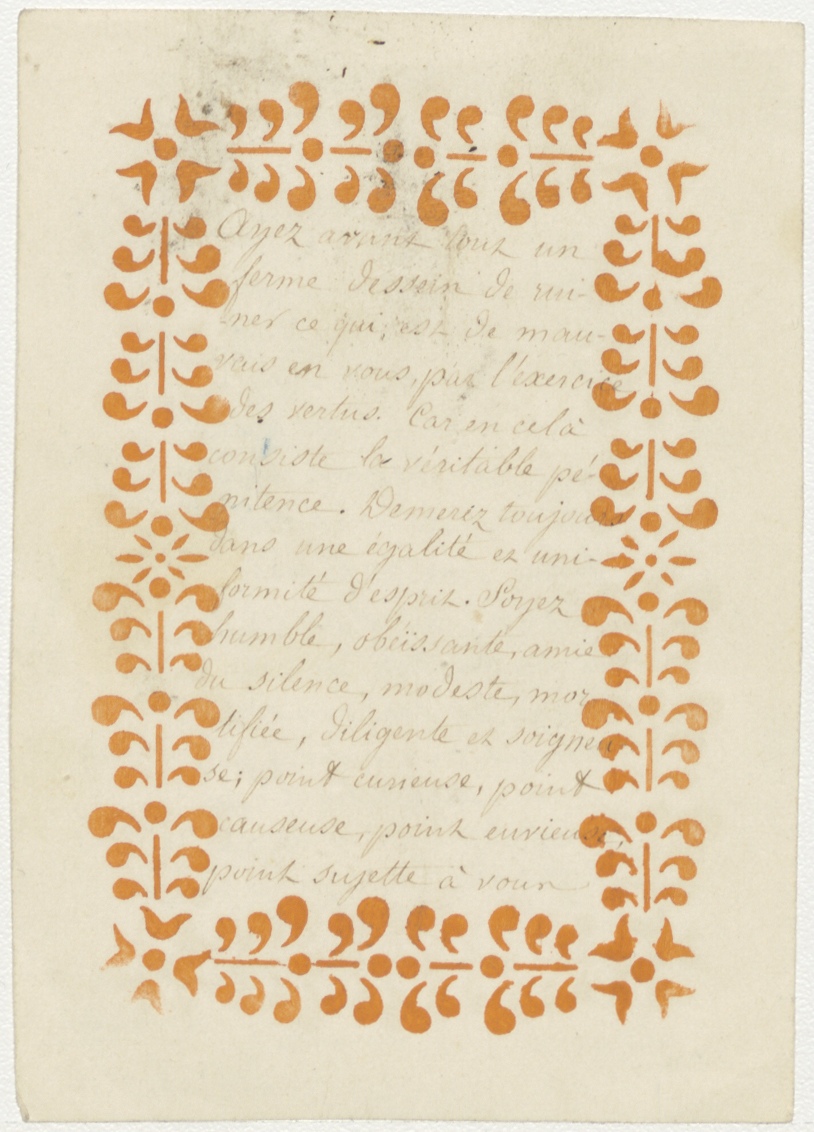 Ayez avant tout un
ferme dessein de rui-
ner ce qui, est de mau-
vais en vous, par l'exercice
des vertus. Car en celà
consiste la véritable pé-
nitence. Demerez toujours
dans une égalité et uni-
formité d'esprit. Soyez
humble, obéissante, amie
du silence, modeste, mor
tifiée, diligente et soigneu
se; point curieuse, point
causeuse, point envieuse,
point sujette à